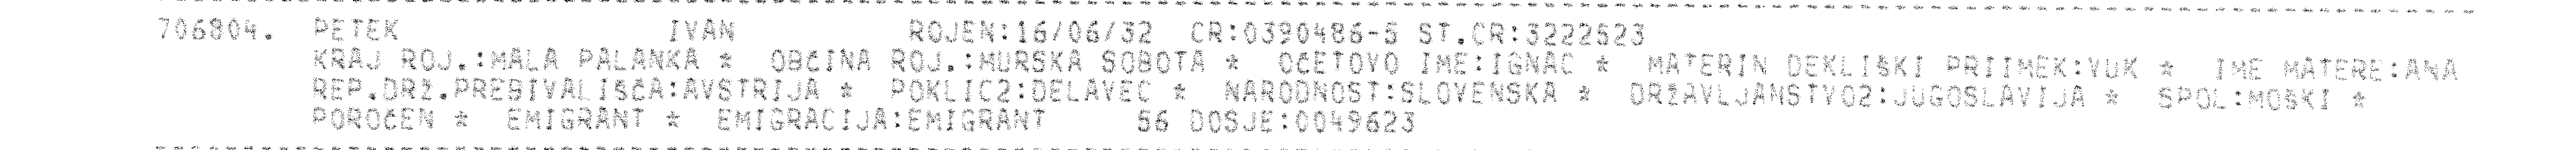 706804. PETEK IVAN ROJEN:16/06/32 CR:0390486-5 ST.CR:3222523
KRAJ ROJ.:MALA PALANKA * OBČINA ROJ.:MURSKA SOBOTA * OČETOVO IME:IGNAC * MATERIN DEKLIŠKI PRIIMEK:VUK * IME MATERE:ANA
REP.DRŽ.PREBIVALIŠČA:AVSTRIJA * POKLIC2:DELAVEC * NARODNOST:SLOVENSKA * DRŽAVLJANSTVO2:JUGOSLAVIJA * SPOL:MOŠKI *
POROČEN * EMIGRANT * EMIGRACIJA:EMIGRANT 56 DOSJE:0049623